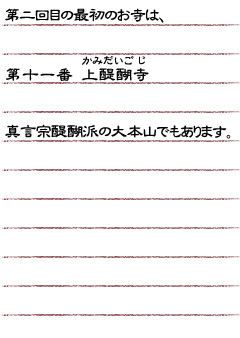 第二回目の最初のお寺は、
かみだいごじ
第十一番 上醍醐寺
真言宗醍醐派の大本山でもあります。